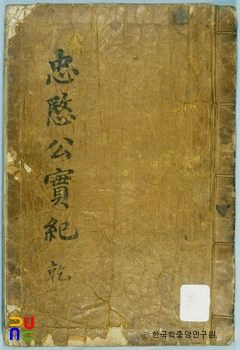 忠愍公實紀 乾
ⓒ 한국학중앙연구원